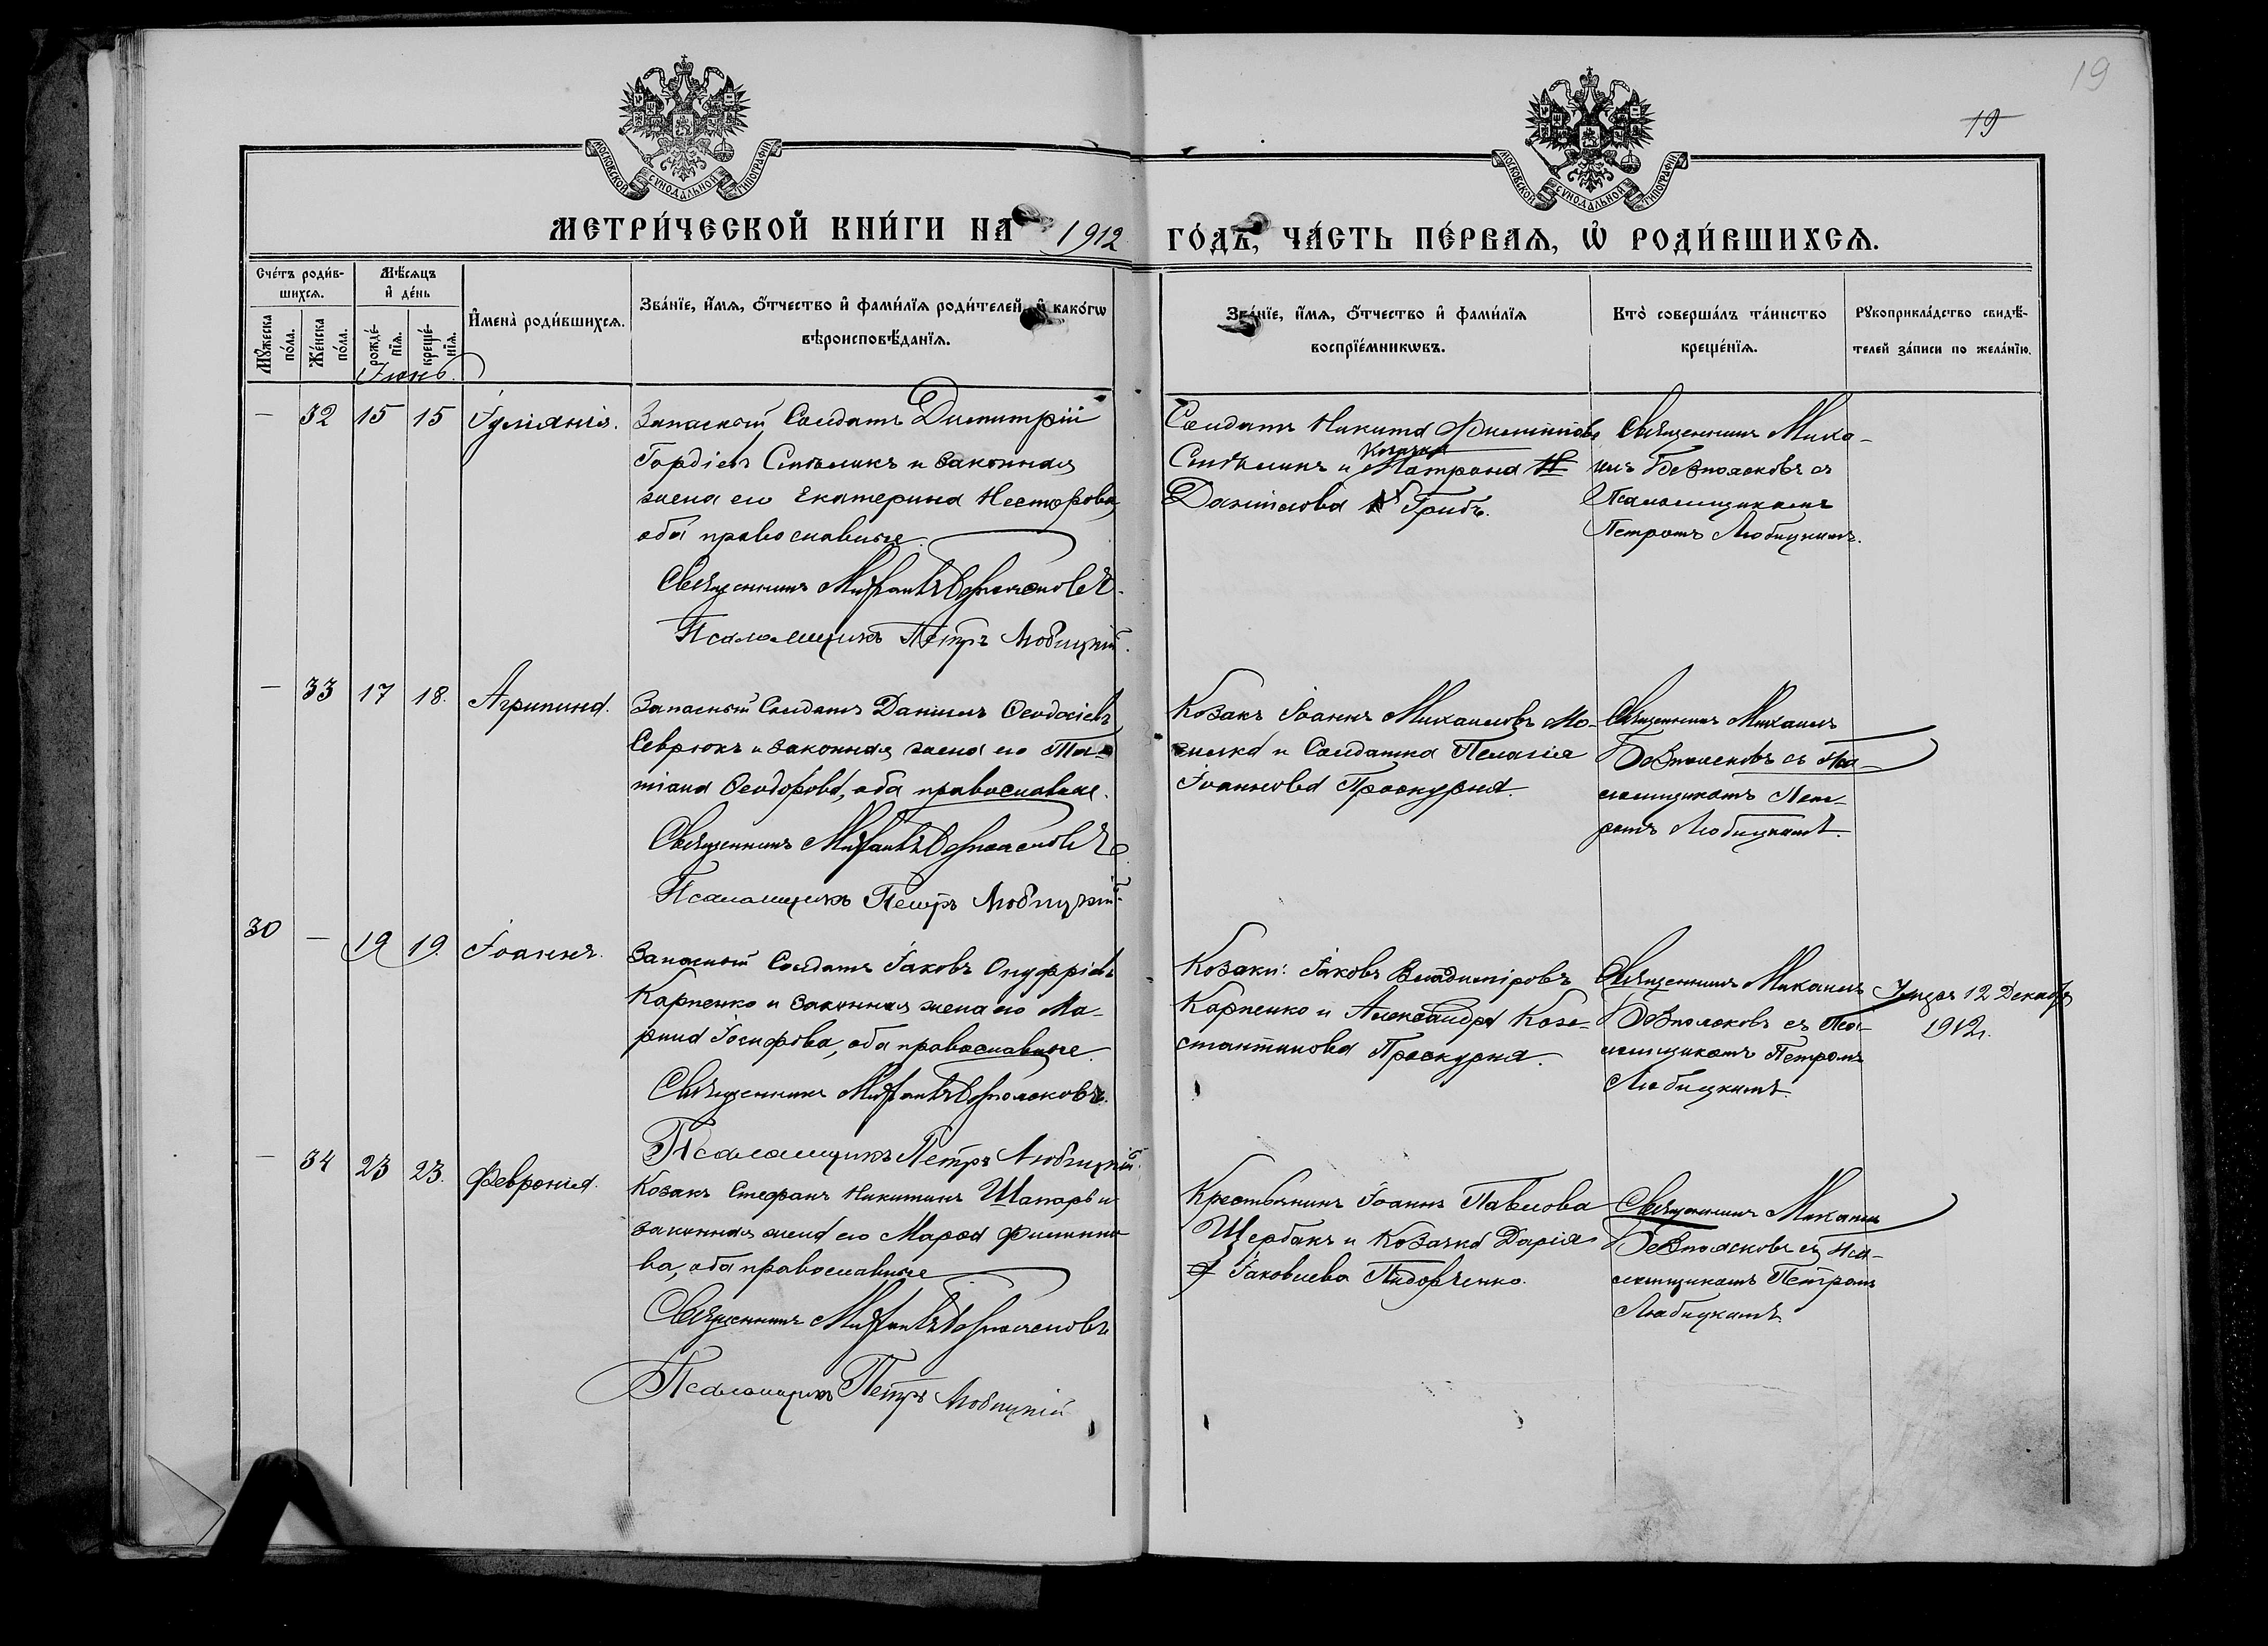 19
19
МОСКОВСКОЙ СѴНОДАЛЬНОЙ ТИПОГРАФІИ
МОСКОВСКОЙ СѴНОДАЛЬНОЙ ТИПОГРАФІИ
МЕТРИ́ЧЕСКОЙ КНИ́ГИ НА 1912 ГО́ДЪ, ЧА́СТЬ ПЕ́РВАѦ, Ѡ҆ РОДИ́ВШИХСѦ.
Сче́тъ роди́в-
шихсѧ.
Мꙋ́жеска по́ла.
Же́нска по́ла.
Мѣ́сѧцъ
и҆ де́нь
рожде́-
нїѧ.
креще́-
нїѧ.
И҆мена̀ роди́вшихсѧ.
Зва́нїе, и҆́мѧ, ѻ҆́тчество и҆ фами́лїѧ роди́телей, и҆ како́гѡ
вѣроисповѣ́данїѧ.
Зва́нїе, и҆́мѧ, ѻ҆́тчество и҆ фами́лїѧ
воспрїе́мникѡвъ.
Кто̀ соверша́лъ та́инство
креще́нїѧ.
Рꙋкоприкла́дство свидѣ́-
телей за́писи по жела́нїю.
Іюнь.
— 32 15 15 Іуліанія.
Запасный Солдатъ Димитрій
Гордіевъ Стобликъ и законная
жена его Екатерина Несторова,
оба православные.
Священникъ Михаилъ Безполсковъ.
Псаломщикъ Петръ Любицкій.
Солдатъ Никита Филипповъ
и Козачка Матрона
Даніилова Грибъ.
Священникъ Миха-
илъ Безполсковъ съ
Псаломщикомъ
Петромъ Любицкимъ.
— 33 17 18. Агрипина.
Запасный Солдатъ Даніилъ Ѳеодосіевъ
Севрюкъ и законная жена его Та-
тіана Ѳеодорова, оба православные.
Священникъ Михаилъ Безполсковъ
Псаломщикъ Петръ Любицкій.
Козакъ Іоаннъ Михаиловъ Мо-
гилка и Солдатка Пелагія
Іоаннова Проскурня.
Священникъ Михаилъ
Безполсковъ съ Пса-
ломщикомъ Пет-
ромъ Любицкимъ.
30 — 19 19. Іоаннъ.
Запасный Солдатъ Іаковъ Онуфріевъ
Карпенко и законная жена его Ма-
рина Іосифова, оба православные.
Священникъ Михаилъ Безполсковъ.
Псаломщикъ Петръ Любицкій.
Козаки: Іаковъ Владиміровъ
Карпенко и Александра Кон-
стантинова Проскурня.
Священникъ Михаилъ
Безполсковъ съ Пса-
ломщикомъ Петромъ
Любицкимъ.
12 Декабр
1912г.
— 34 23 23. Февронія.
Козакъ Стефанъ Никитинъ Шапарь и
законная жена его Марѳа Филиппо-
ва, оба православные
Священникъ Михаилъ Безполсковъ
Псаломщикъ Петръ Любицкій
Крестьянинъ Іоаннъ Павлова
Щербакъ и Козачка Дарія
Іаковлева Пидорченко.
Священникъ Михаилъ
Безполсковъ съ Пса-
ломщикомъ Петромъ
Любицкимъ.